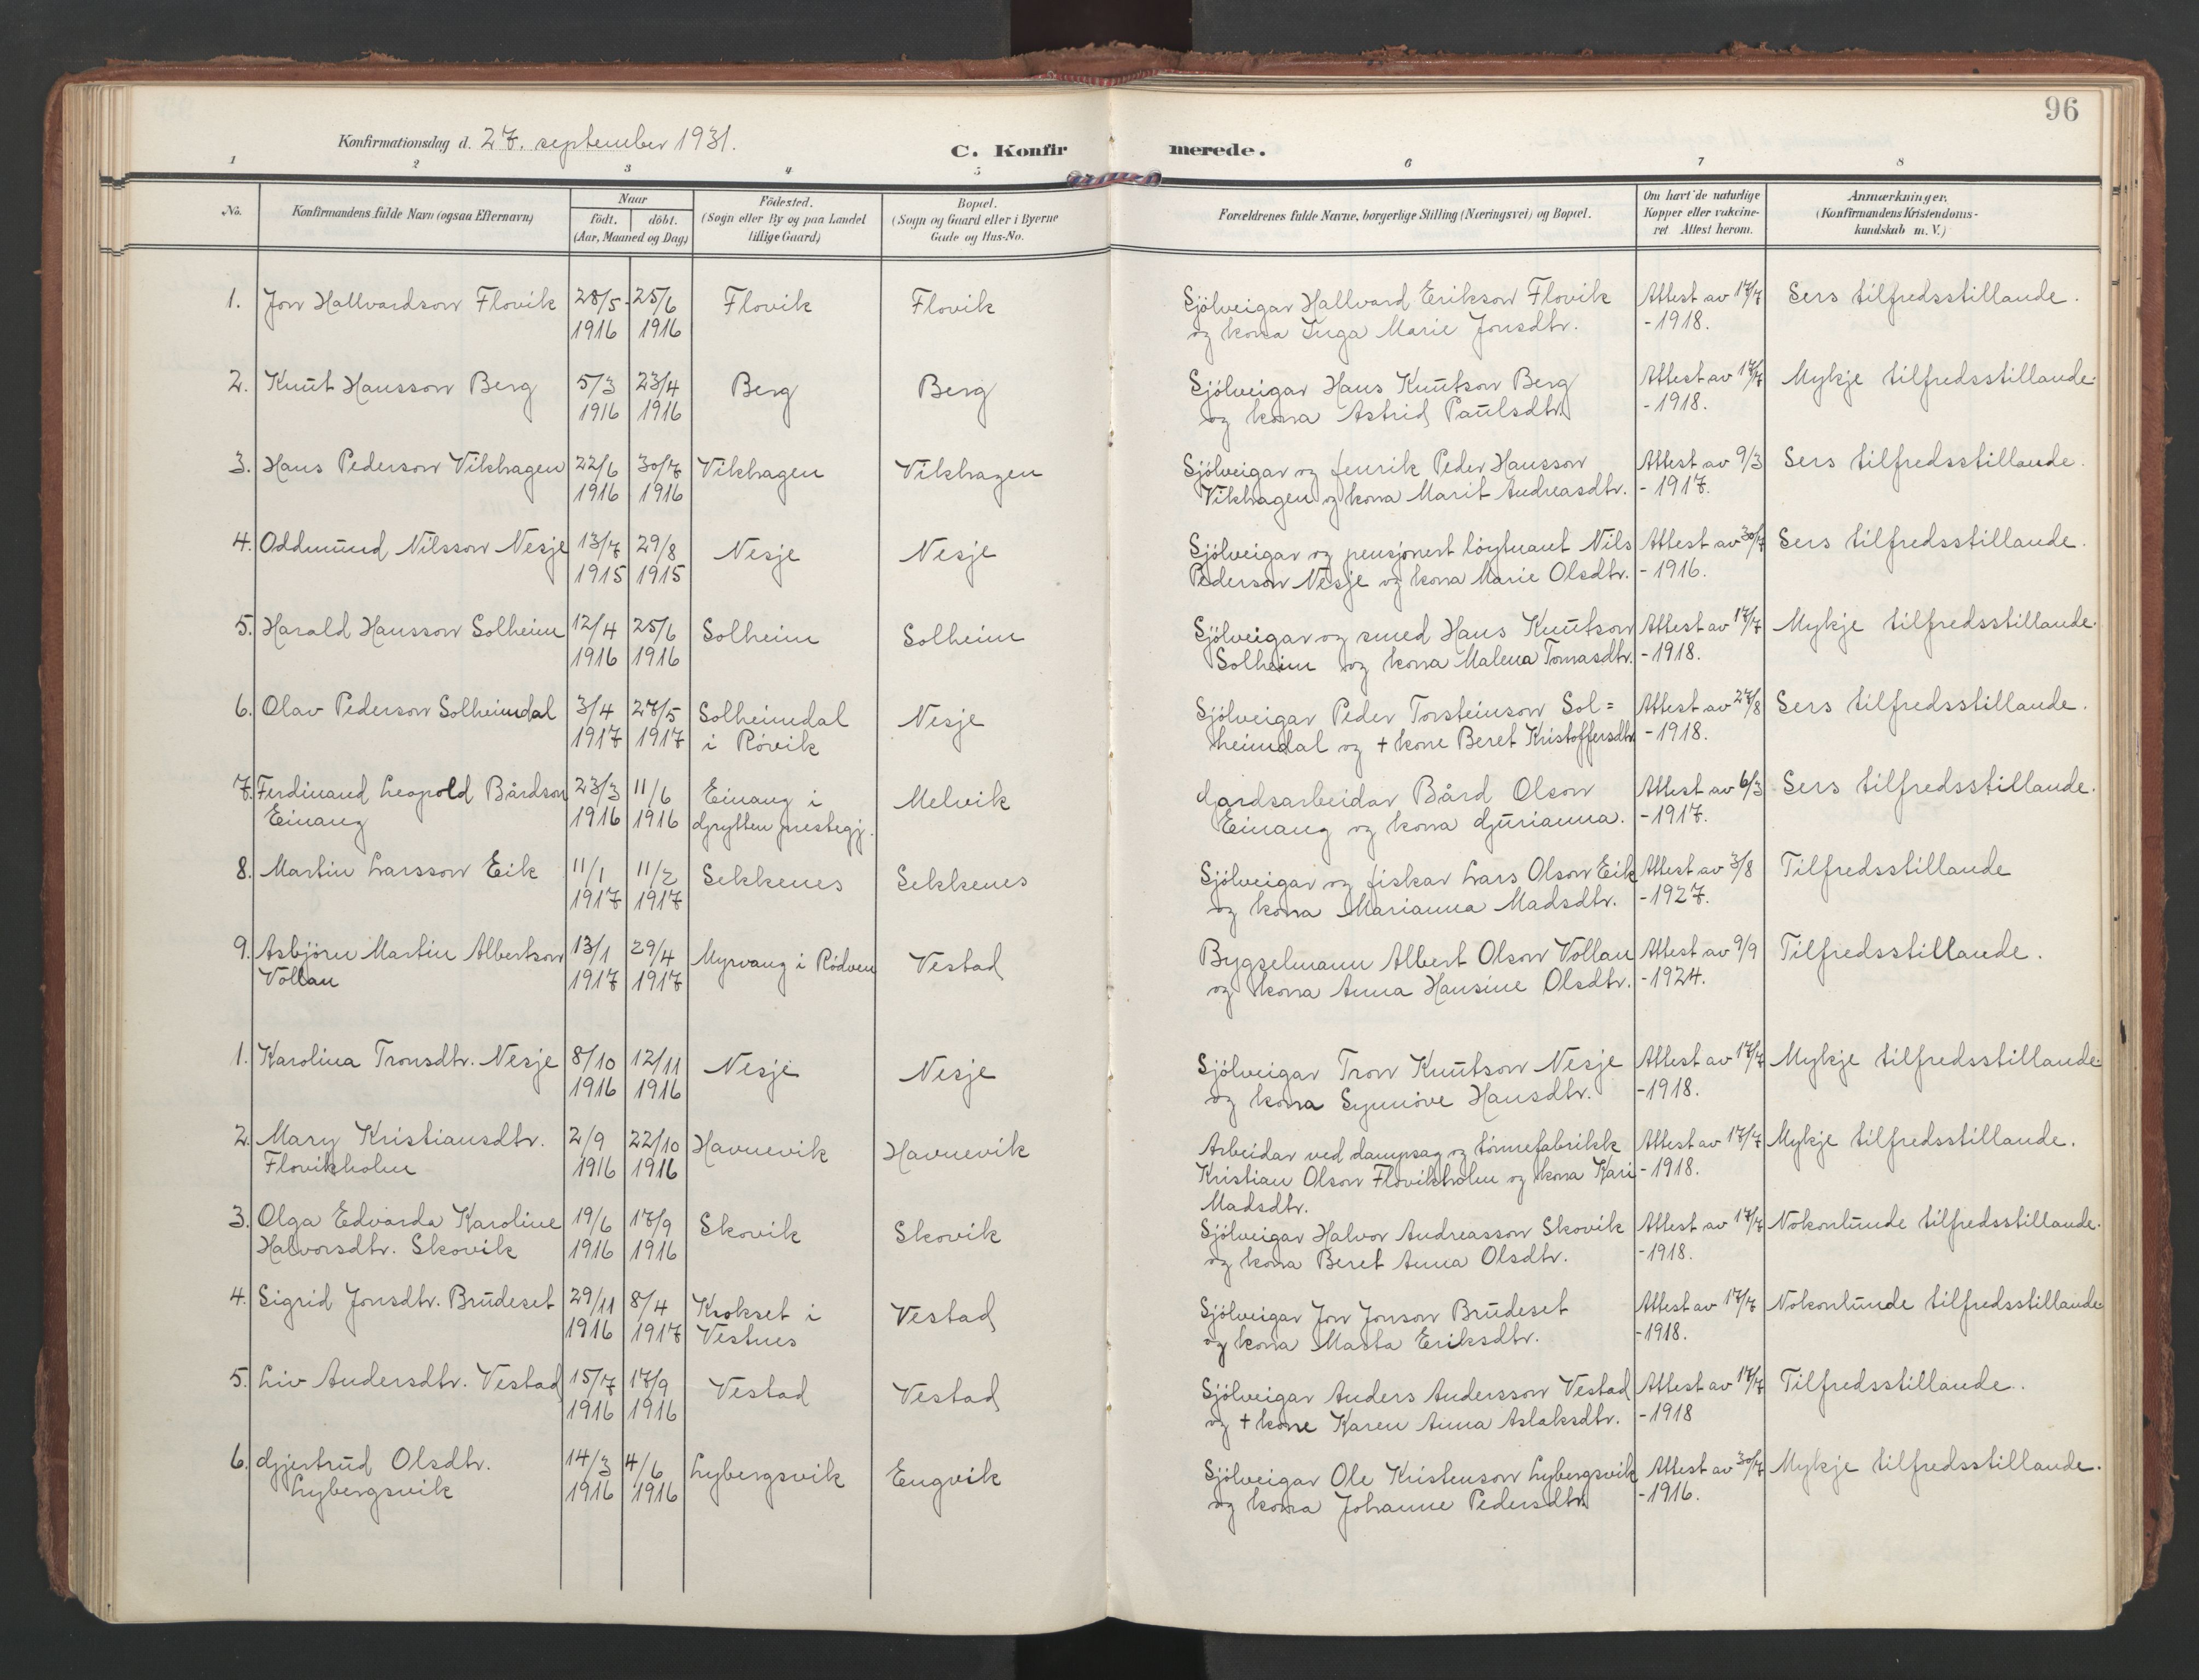 96
Konfirmationsdag d. 27. september 1931.
C. Konfirmerede.
1 2 3 4 5 6 7 8
No.
Konfirmandens fulde Navn (ogsaa Efternavn)
Naar
födt. döbt.
(Aar, Maaned og Dag)
Födested.
(Sogn eller By og paa Landet
tillige Gaard)
Bopæl.
(Sogn og Gaard eller i Byerne
Gade og Hus-No.
Forældrenes fulde Navne, borgerlige Stilling (Næringsvei) og Bopæl.
Om havt de naturlige
Kopper eller vakcine-
ret Attest herom.
Anmærkninger.
(Konfirmandens Kristendoms-
kundskab m. V.)
1. Jon Hallvardson Flovik 28/5- 25/6 Flovik Flovik Sjölveigar Hallvard Erikson Flovik Attest av 17/7 Sers tilfredsstillande.
1916 1916 og kona Inga Marie Jonsdtr. -1918.
2. Knut Hansson Berg 5/3 23/4 Berg Berg Sjölveigar Hans Knutson Berg Attest av 17/7 Mykje tilfredsstillande.
1916 1916 og kona Astrid Paulsdtr. -1918.
3. Hans Pederson Vikhagen 22/6 30/7 Vikhagen Vikhagen Sjölveigar og fenrik Peder Hansson Attest av 9/3 Sers tilfredsstillande.
1916 1916 Vikhagen og kona Marit Andreasdtr. -1917.
4. Oddmund Nilsson Nesje 13/7 29/8 Nesje Nesje Sjölveigar og pensjonert löytnant Nils Attest av 30/7 Sers tilfredsstillande.
1915 1915 Pederson Nesje og kona Marie Olsdtr. -1916.
5. Harald Hansson Solheim 12/4 25/6 Solheim Solheim Sjölveigar og smed Hans Knutson Attest av 17/7 Mykje tilfredsstillande.
1916 1916 Solheim og kona Malena Tomasdtr. -1918.
6. Olav Pederson Solheimdal 3/4 27/5 Solheimdal Nesje Sjölveigar Peder Torsteinson Sol= Attest av 27/8 Sers tilfredsstillande.
1917 1917 i Rövik heimdal og + kone Beret Kristoffersdtr. -1918.
7. Ferdinand Leopold Bårdson 23/3 11/6 Einang i Melvik Gardsarbeidar Bård Olson Attest av 6/3 Sers tilfredsstillande.
Einang 1916 1916 Grytten prestegj. Einang og kona Gurianna. -1917.
8. Martin Larsson Eik 11/1 11/2 Sekkenes Sekkenes Sjölveigar og fiskar Lars Olson Eik Attest av 3/8 Tilfredsstillande
1917 1917 og kona Marianna Madsdtr. -1927.
9. Asbjörn Martin Albertson 13/1 29/4 Myrvang i Rödven Vestad Bygselmann Albert Olson Vollan Attest av 9/9 Tilfredsstillande.
Vollan 1917 1917 og kona Anna Hansine Olsdtr. -1924.
1. Karolina Tronsdtr. Nesje 8/10 12/11 Nesje Nesje Sjölveigar Tron Knutson Nesje Attest av 17/7 Mykje tilfredsstillande.
1916 1916 og kona Synnöve Hansdtr. -1918.
2. Mary Kristiansdtr. 2/9 22/10 Havnevik Havnevik Arbeidar ved dampsag og tönnefabrikk Attest av 17/7 Mykje tilfredsstillande.
Flovikholm 1916 1916 Kristian Olson Flovikholm og kona Kari -1918.
Madsdtr.
3. Olga Edvarda Karoline 19/6 17/9 Skovik Skovik Sjölveigar Halvor Andreasson Skovik Attest av 17/7 Nokonlunde tilfredsstillande.
Halvorsdtr. Skovik 1916 1916 og kona Beret Anna Olsdtr. -1918.
4. Sigrid Jonsdtr. Brudeset 29/11 8/4 Krokset i Vestad Sjölveigar Jon Jonson Brudeset Attest av 17/7 Nokonlunde tilfredsstillande
1916 1917 Vestnes og kona Marta Eriksdtr. -1918.
5. Liv Andersdtr. Vestad 15/7 17/9 Vestad Vestad Sjölveigar Anders Andersson Vestad Attest av 17/7 Tilfredsstillande.
1916 1916 og + kone Karen Anna Aslaksdtr. -1918
6. Gjertrud Olsdtr. 14/3 4/6 Lybergsvik Engvik Sjölveigar Ole Kristenson Lybergsvik Attest av 30/7 Mykje tilfredsstillande.
Lybergsvik 1916 1916 og kona Johanne Pedersdtr. -1916.